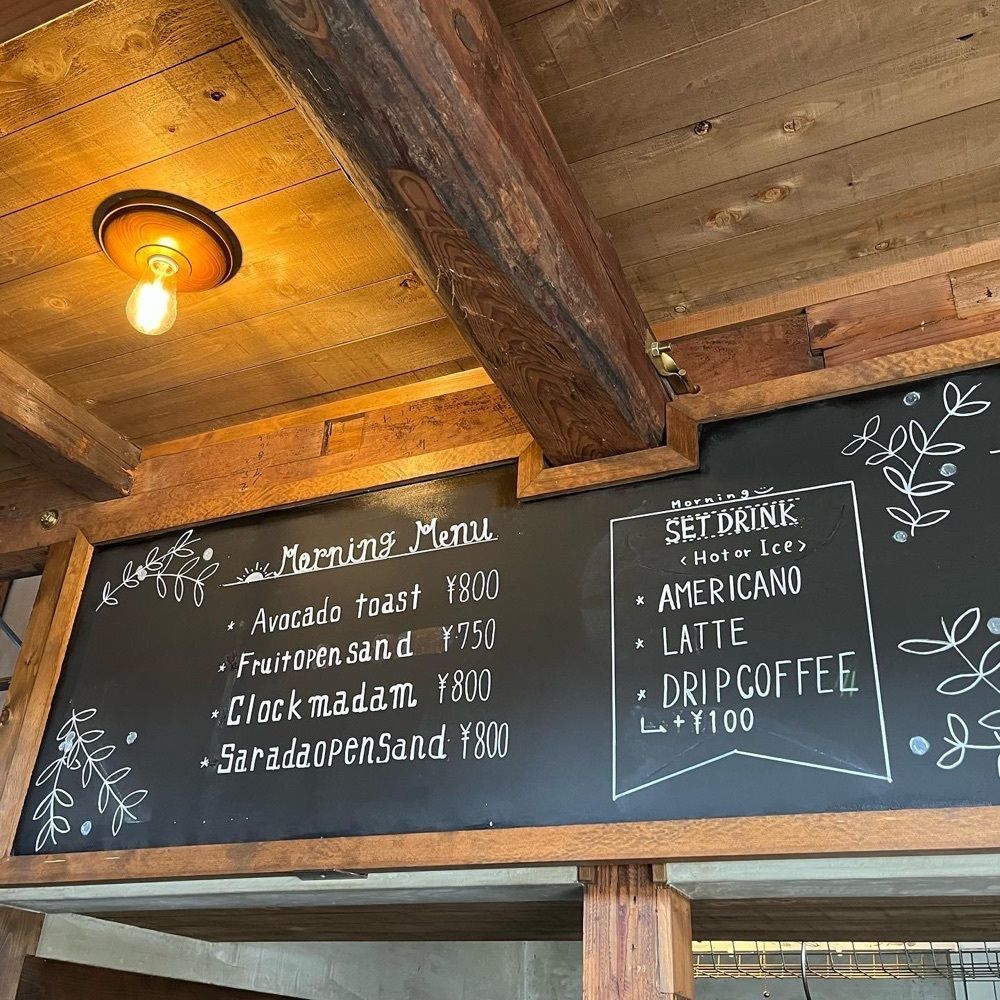 Morning Menu
* Avocado toast ¥800
* Fruitopen sand ¥750
* Clock madam ¥800
* Saradaopensand ¥800
Morning
SET DRINK
<Hot or Ice>
* AMERICANO
* LATTE
* DRIPCOFFEE
+¥100